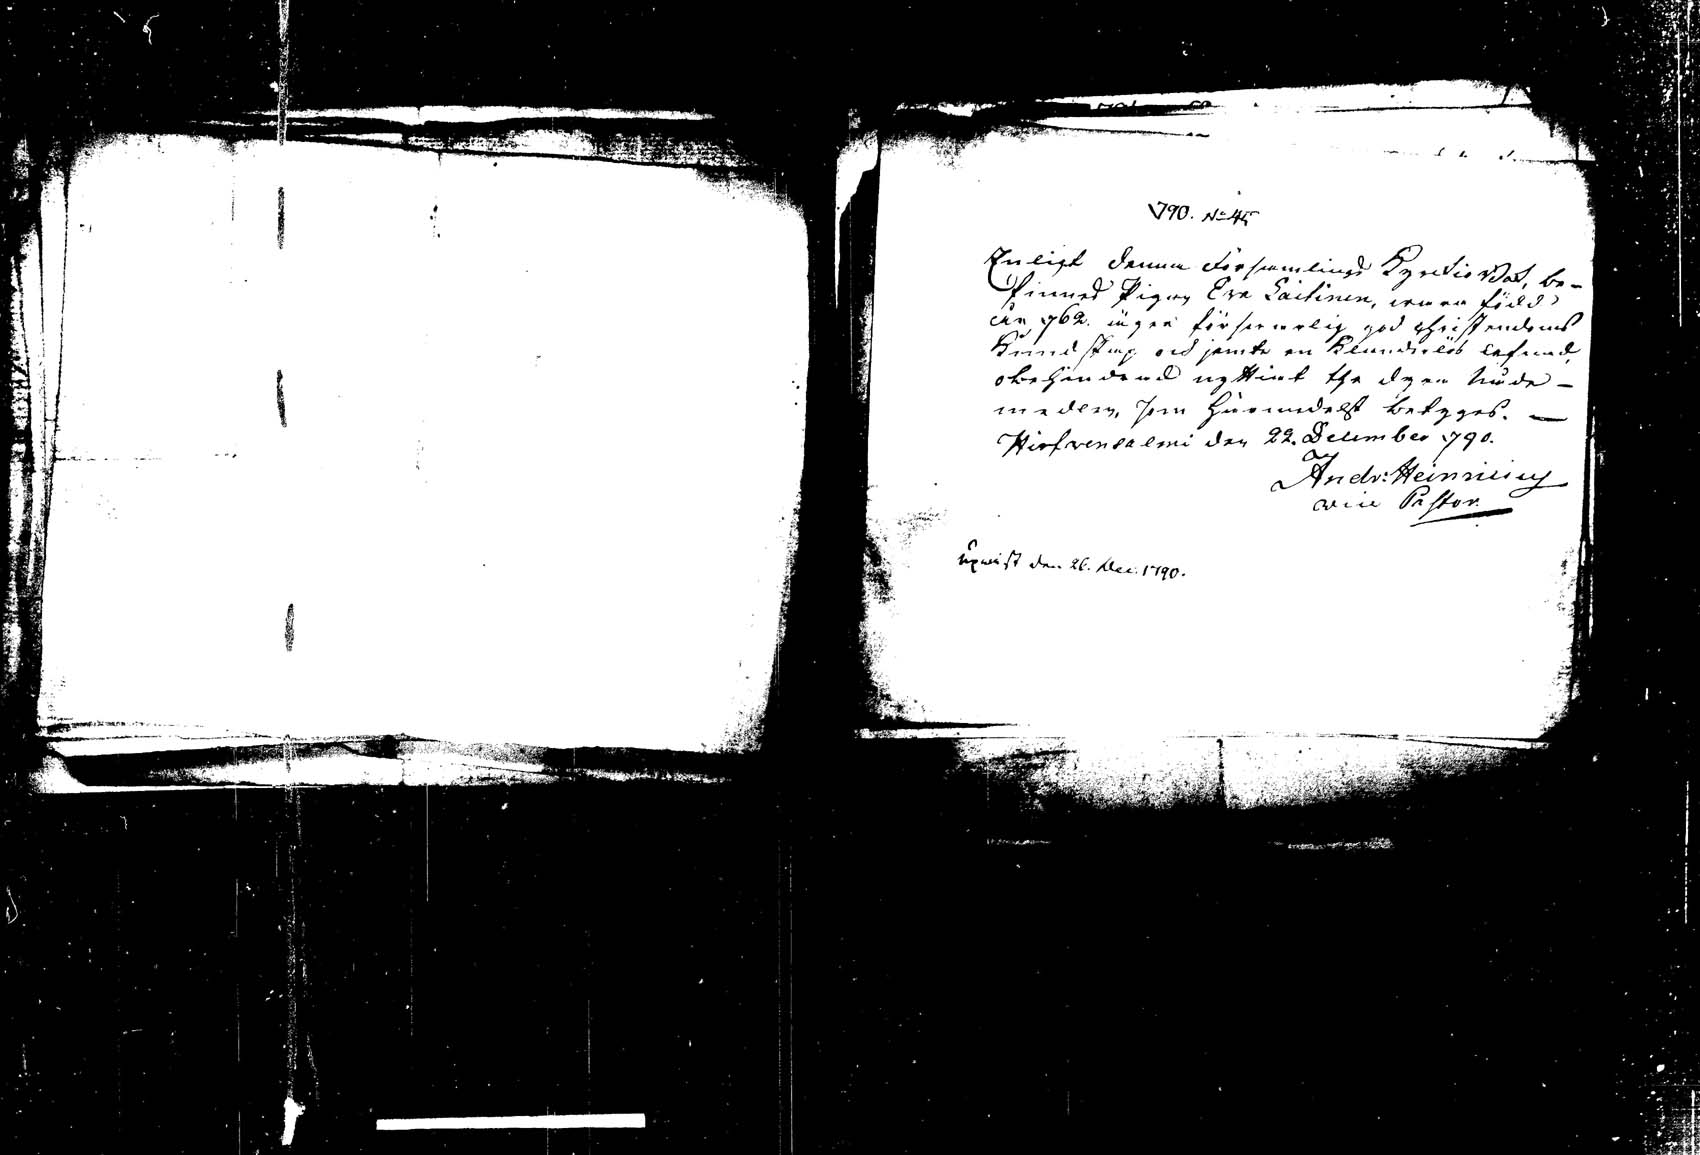 1790. No 45
Enligt denna Församlings Kyrkio Bok, be-
finnes Pigan Eva Laitinen, vara född
åhr 762. äger försvarlig god christendoms
Kundskap och jemte en klanderlös lefnad,
obehindrad nyttiat the dyra nåde-
medlen, som härmedelst betyges.
Hirfvensalmi den 22. December 790.
Andr: Heinricius
vice Pastor.
upvist den 26. Dec. 1790.